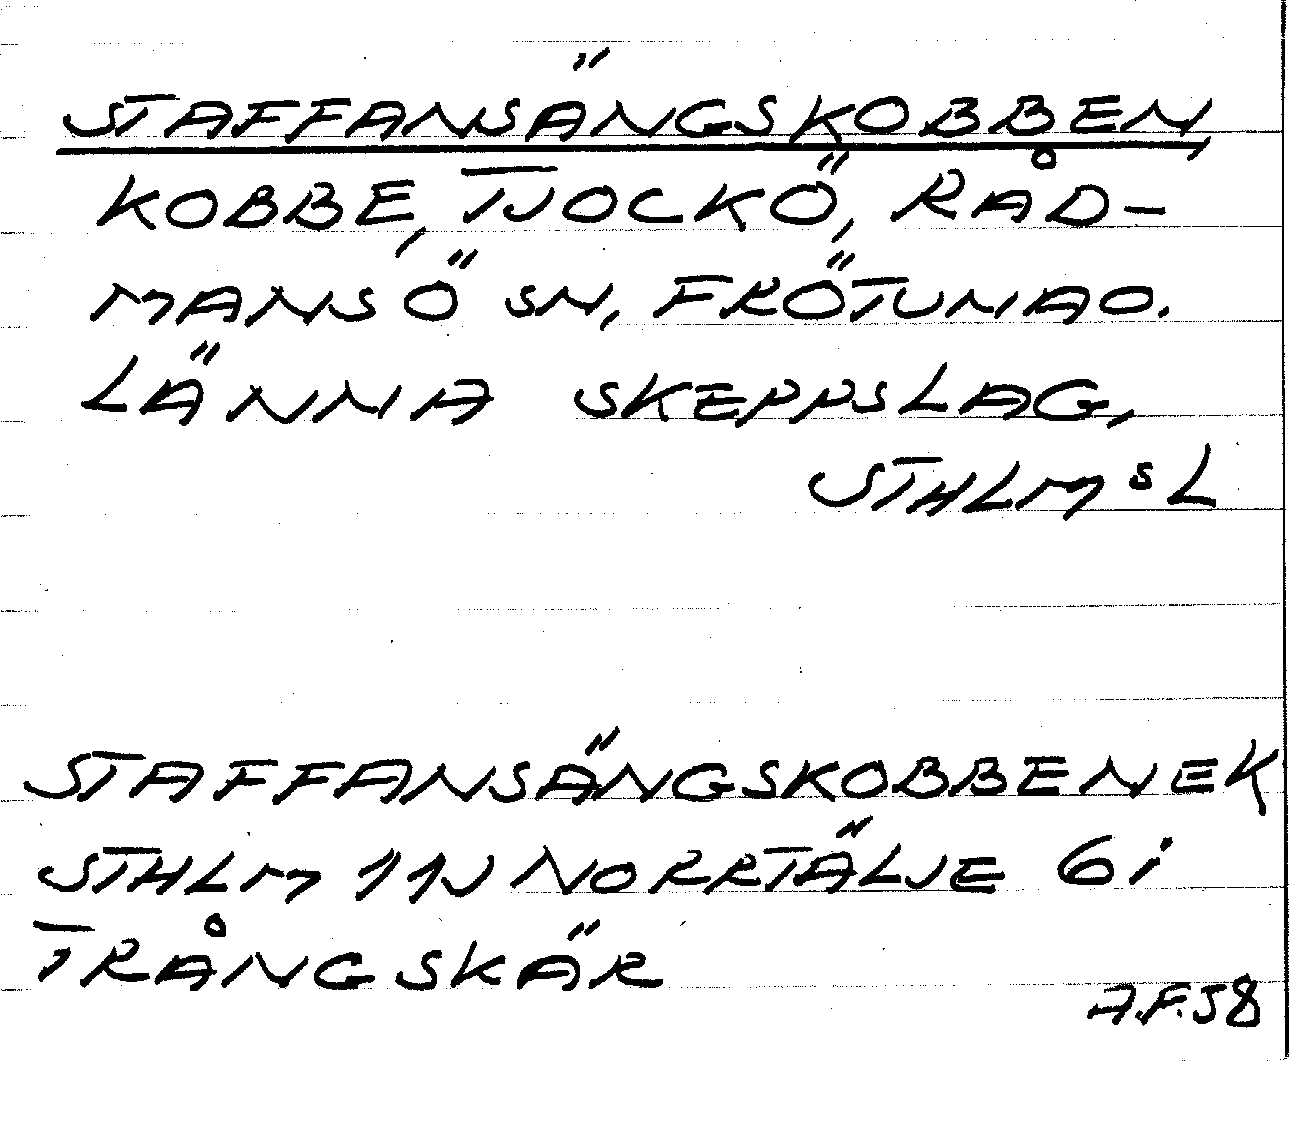 STAFFANSÄNGSKOBBEN,
KOBBE, TJOCKÖ, RÅD-
MANSÖ SN, FRÖTUNA O.
LÄNNA SKEPPSLAG,
STHLMS L
STAFFANSÄNGSKOBBEN EK
STHLM 11J NORRTÄLJE 6i
TRÅNGSKÄR
A.F.58